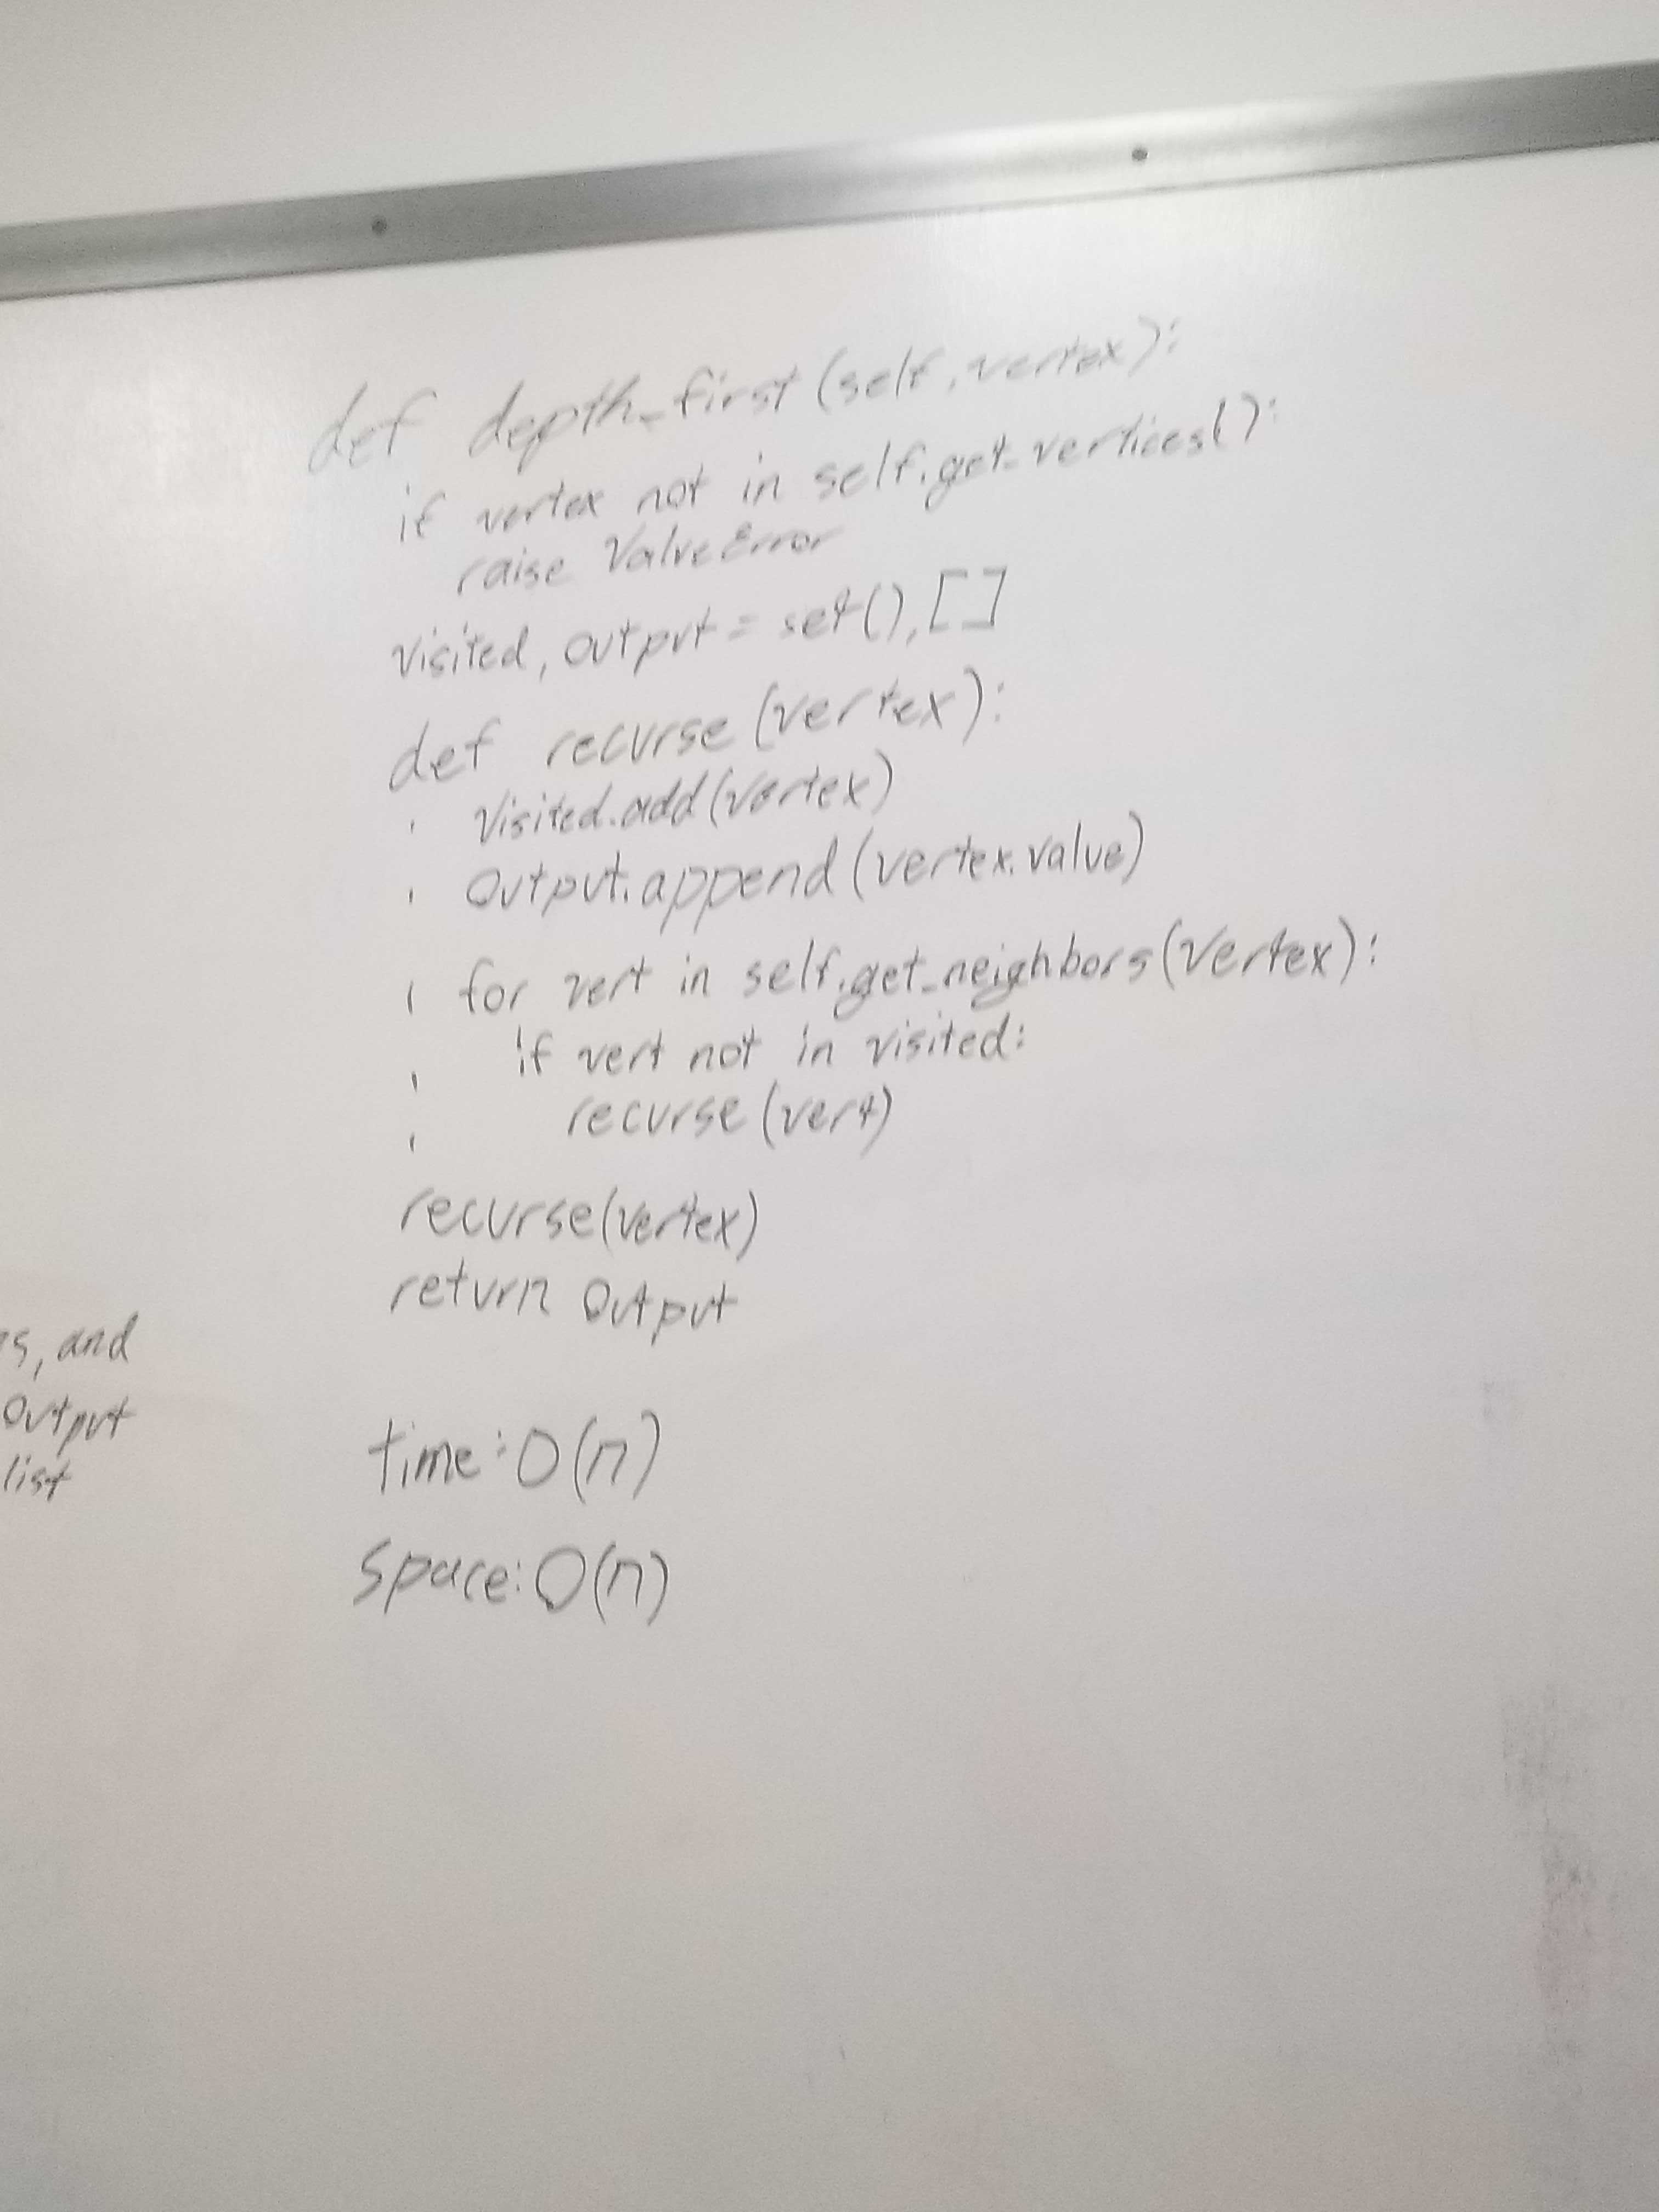 def depth_first(self, vertex):
if vertex not in self.get_vertices():
raise ValueError
visited, output = set(), []
def recurse(vertex):
visited.add(vertex)
output.append(vertex.value)
for vert in self.get_neighbors(vertex):
if vert not in visited:
recurse(vert)
recurse(vertex)
return output
and
output
list
time: O(n)
space: O(n)